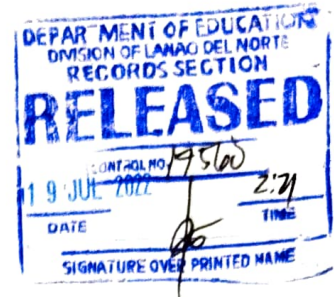 DEPARTMENT OF EDUCATION
DIVISION OF LANAO DEL NORTE
RECORDS SECTION
RELEASED
CONTROL NO.
19 JUL 2022
DATE TIME
SIGNATURE OVER PRINTED NAME